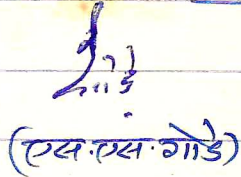 (एस.एस.गोडे)